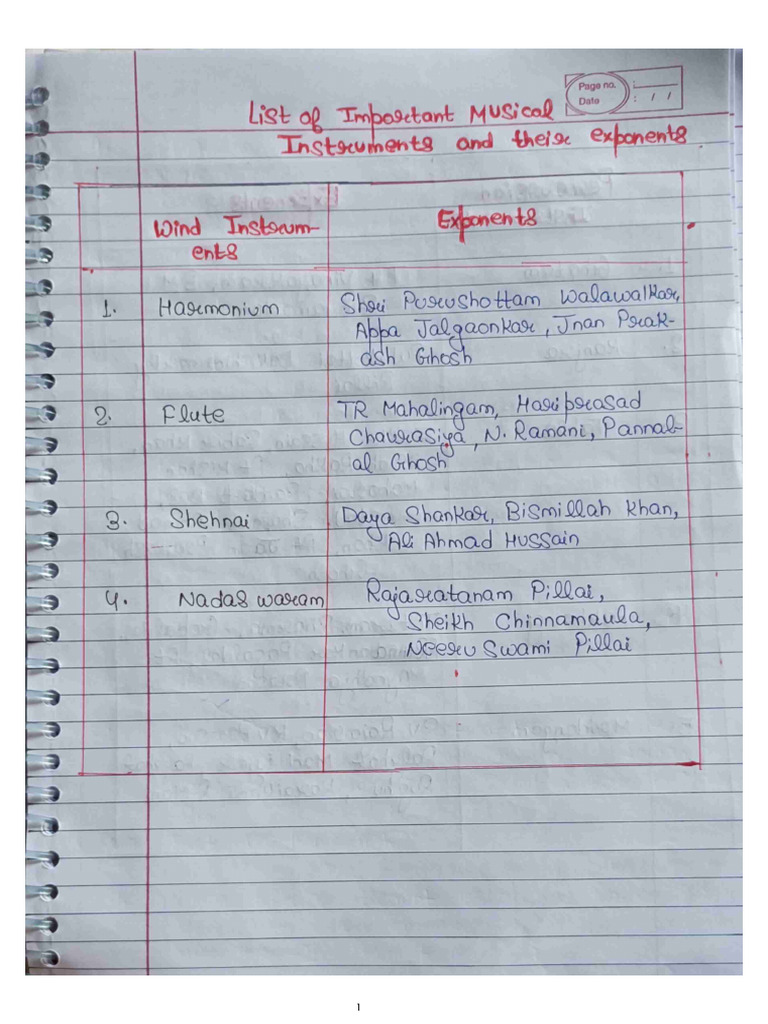 Page no.
Date : / /
List of Important Musical
Instruments and their exponents
Wind Instrum-
ents
Exponents
1. Harmonium Shri Purushottam Walawalkar,
Appa Jalgaonkar, Jnan Prak-
ash Ghosh
2. Flute TR Mahalingam, Hariprasad
Chaurasiya, N. Ramani, Pannal-
al Ghosh
3. Shehnai Daya Shankar, Bismillah Khan,
Ali Ahmad Hussain
4. Nadaswaram Rajaratanam Pillai,
Sheikh Chinnamaula,
Neeru Swami Pillai
1